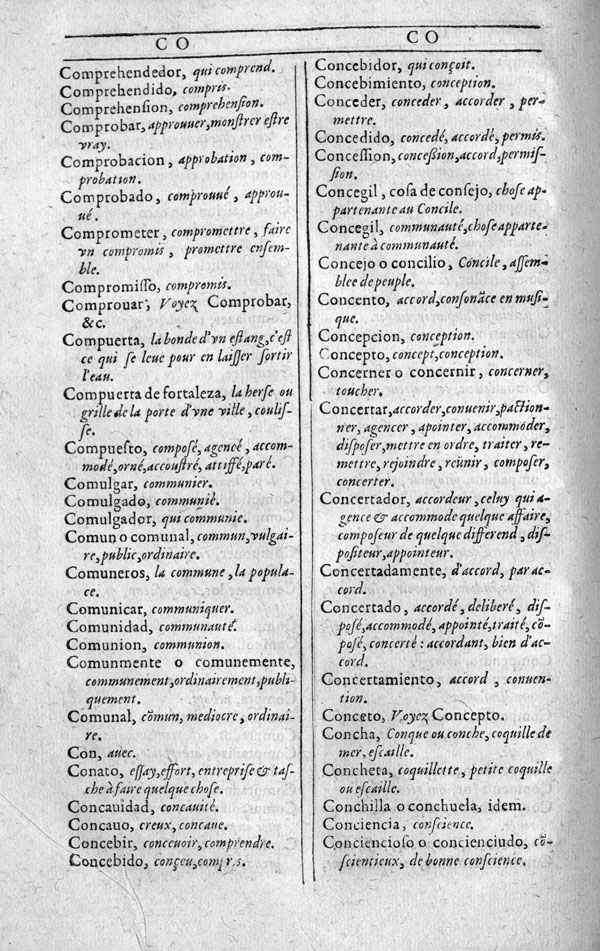 CO
Comprehendedor, qui comprend.
Comprehendido, compris.
Comprehenſion, comprehenſion.
Comprobar, approuuer, monſtrer eſtre
vray.
Comprobacion, approbation, com-
probation.
Comprobado, comprouué, approu-
ué.
Comprometer, compromettre, faire
vn compromis, promettre enſem-
ble.
Compromiſſo, compromis.
Comprouar, Voyez Comprobar,
&c.
Compuerta, la bonde d'vn eſtang, c'eſt
ce qui ſe leue pour en laiſſer ſortir
l'eau.
Compuerta de fortaleza, la herſe ou
grille de la porte d'vne ville, couliſ-
ſe.
Compueſto, compoſé, agencé, accom-
modé, orné, accouſtré, attiffé, paré.
Comulgar, communier.
Comulgado, communié.
Comulgador, qui communie.
Comun o comunal, commun, vulgai-
re, public, ordinaire.
Comuneros, la commune, la popula-
ce.
Comunicar, communiquer.
Comunidad, communauté.
Comunion, communion.
Comunmente o comunemente,
communement, ordinairement, publi-
quement.
Comunal, cõmun, mediocre, ordinai-
re.
Con, auec.
Conato, eſſay, effort, entrepriſe & taſ-
che à faire quelque choſe.
Concauidad, concauité.
Concauo, creux, concaue.
Concebir, conceuoir, comprendre.
Concebido, conçeu, compr.s.
CO
Concebidor, qui conçoit.
Concebimiento, conception.
Conceder, conceder, accorder, per-
mettre.
Concedido, concedé, accordé, permis.
Conceſſion, conceſsion, accord, permiſ-
ſion.
Concegil, coſa de conſejo, choſe ap-
partenante au Concile.
Concegil, communauté, choſe apparte-
nante à communauté.
Concejo o concilio, Concile, aſſem-
blee de peuple.
Concento, accord, conſonãce en muſi-
que.
Concepcion, conception.
Concepto, concept, conception.
Concerner o concernir, concerner,
toucher.
Concertar, accorder, conuenir, paction-
ner, agencer, apointer, accommoder,
diſpoſer, mettre en ordre, traiter, re-
mettre, rejoindre, reünir, compoſer,
concerter.
Concertador, accordeur, celuy qui a-
gence & accommode quelque affaire,
compoſeur de quelque differend, diſ-
poſiteur, appointeur.
Concertadamente, d'accord, par ac-
cord.
Concertado, accordé, deliberé, diſ-
poſé, accommodé, appointé, traité, cõ-
poſé, concerté : accordant, bien d'ac-
cord.
Concertamiento, accord, conuen-
tion.
Conceto, Voyez Concepto.
Concha, Conque ou conche, coquille de
mer, eſcaille.
Concheta, coquillette, petite coquille
ou eſcaille.
Conchilla o conchuela, idem.
Conciencia, conſcience.
Conciencioſo o concienciudo, cõ-
ſcientieux, de bonne conſcience.